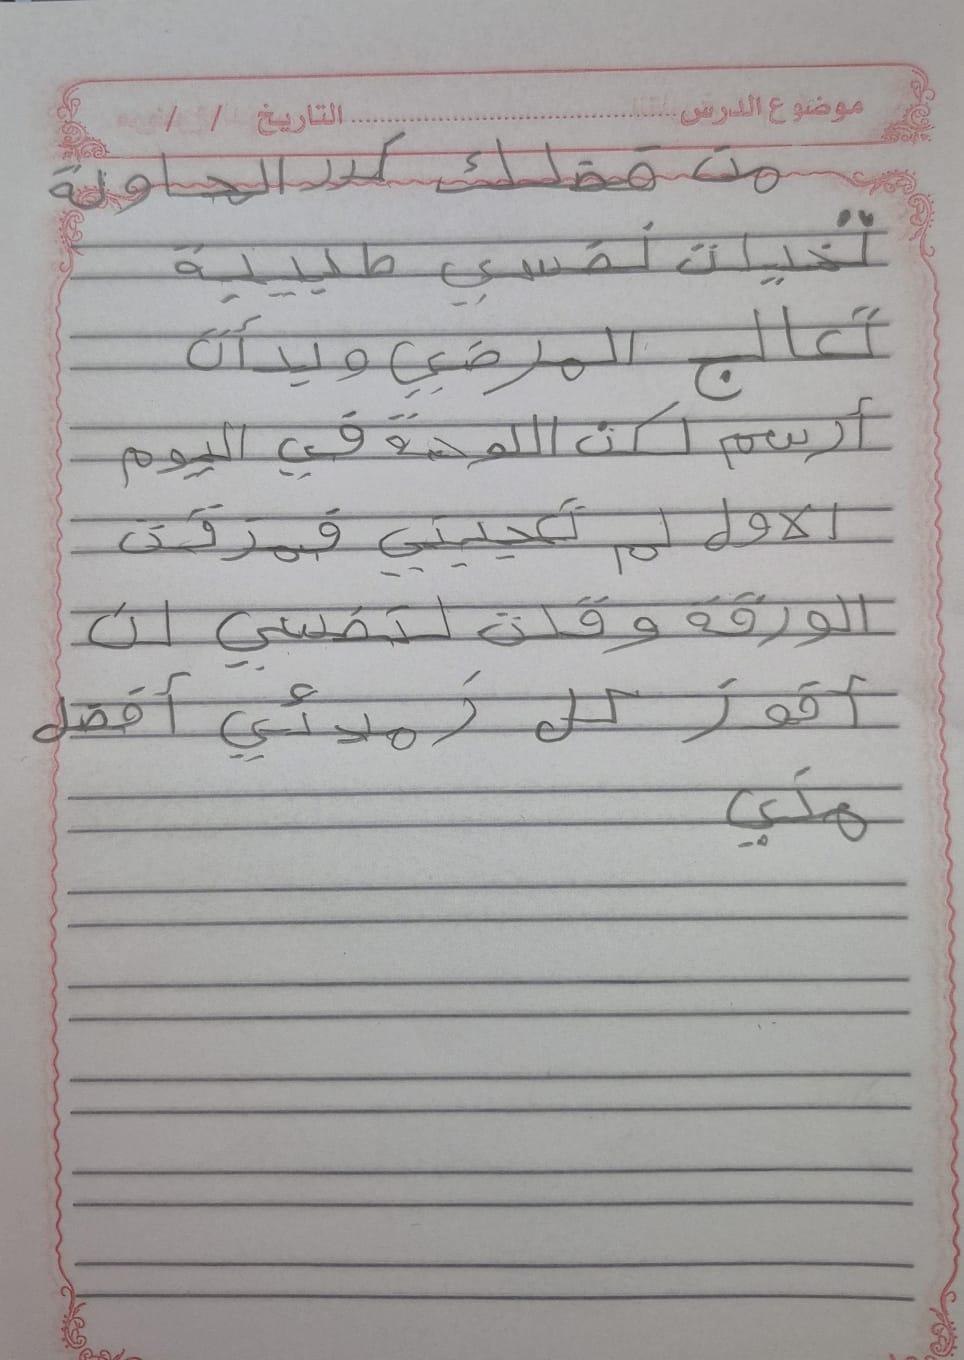 موضوع الدرس ........................ التاريخ / /
من فضلك كرر الجاولة
تخيلت نفسي طبيبة
تعالج المرضي وبدأت
أرسم لكن اللوحة في اليوم
الاول لم تعجبني فمزقت
الورقة وقلت لنفسي ان
أفوز كل زملائي أفضل
مني